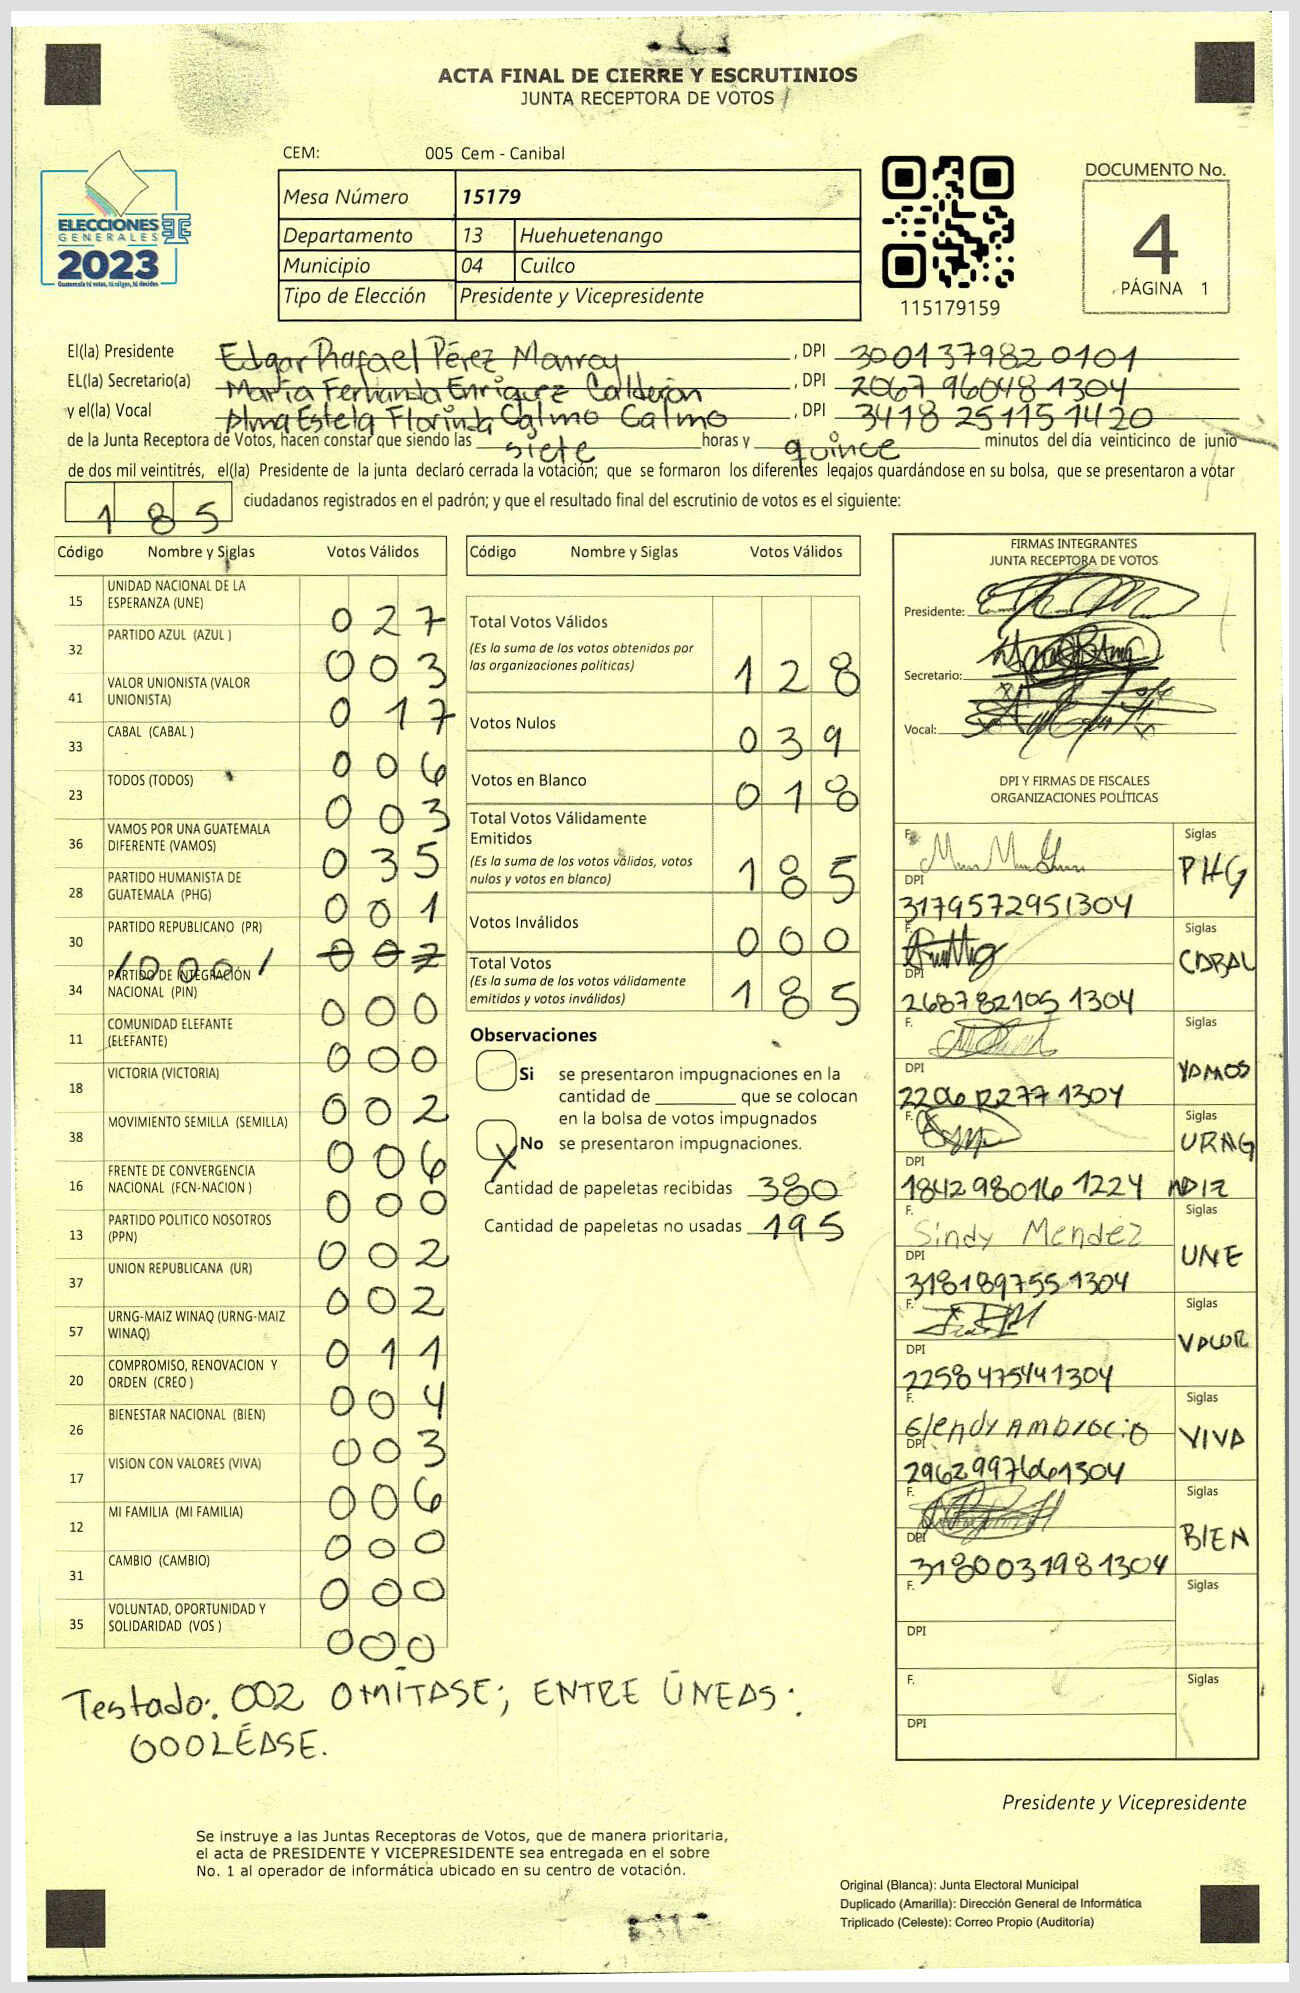 ACTA FINAL DE CIERRE Y ESCRUTINIOS
JUNTA RECEPTORA DE VOTOS
CEM: 005 Cem - Canibal
Mesa Número 15179
Departamento 13 Huehuetenango
Municipio 04 Cuilco
Tipo de Elección Presidente y Vicepresidente
ELECCIONES
GENERALES
2023
Guatemala tú votas, tú eliges, tú decides
115179159
DOCUMENTO No.
4
PÁGINA 1
El(la) Presidente Edgar Rafael Pérez Monroy , DPI 300137982 0101
EL(la) Secretario(a) María Fernanda Enriquez Calderón , DPI 2067 96048 1304
y el(la) Vocal Alma Estela Florinda Calmo Calmo , DPI 3418 25115 1420
de la Junta Receptora de Votos, hacen constar que siendo las siete horas y quince minutos del día veinticinco de junio
de dos mil veintitrés, el(la) Presidente de la junta declaró cerrada la votación; que se formaron los diferentes legajos guardándose en su bolsa, que se presentaron a votar
185 ciudadanos registrados en el padrón; y que el resultado final del escrutinio de votos es el siguiente:
Código Nombre y Siglas Votos Válidos
15 UNIDAD NACIONAL DE LA ESPERANZA (UNE) 027
32 PARTIDO AZUL (AZUL ) 003
41 VALOR UNIONISTA (VALOR UNIONISTA) 017
33 CABAL (CABAL ) 006
23 TODOS (TODOS) 003
36 VAMOS POR UNA GUATEMALA DIFERENTE (VAMOS) 035
28 PARTIDO HUMANISTA DE GUATEMALA (PHG) 001
30 PARTIDO REPUBLICANO (PR) 002
/000/
34 PARTIDO DE INTEGRACIÓN NACIONAL (PIN) 000
11 COMUNIDAD ELEFANTE (ELEFANTE) 000
18 VICTORIA (VICTORIA) 002
38 MOVIMIENTO SEMILLA (SEMILLA) 006
16 FRENTE DE CONVERGENCIA NACIONAL (FCN-NACION ) 000
13 PARTIDO POLITICO NOSOTROS (PPN) 002
37 UNION REPUBLICANA (UR) 002
57 URNG-MAIZ WINAQ (URNG-MAIZ WINAQ) 011
20 COMPROMISO, RENOVACION Y ORDEN (CREO ) 004
26 BIENESTAR NACIONAL (BIEN) 003
17 VISION CON VALORES (VIVA) 006
12 MI FAMILIA (MI FAMILIA) 000
31 CAMBIO (CAMBIO) 000
35 VOLUNTAD, OPORTUNIDAD Y SOLIDARIDAD (VOS ) 000
Código Nombre y Siglas Votos Válidos
Total Votos Válidos 128
(Es la suma de los votos obtenidos por
las organizaciones políticas)
Votos Nulos 039
Votos en Blanco 018
Total Votos Válidamente
Emitidos 185
(Es la suma de los votos válidos, votos
nulos y votos en blanco)
Votos Inválidos 000
Total Votos 185
(Es la suma de los votos válidamente
emitidos y votos inválidos)
Observaciones
Si se presentaron impugnaciones en la
cantidad de ________ que se colocan
en la bolsa de votos impugnados
X No se presentaron impugnaciones.
Cantidad de papeletas recibidas 380
Cantidad de papeletas no usadas 195
FIRMAS INTEGRANTES
JUNTA RECEPTORA DE VOTOS
Presidente:
Secretario:
Vocal:
DPI Y FIRMAS DE FISCALES
ORGANIZACIONES POLÍTICAS
F. Siglas PHG
DPI 3179572951304
F. Siglas CABAL
DPI 268782105 1304
F. Siglas VAMOS
DPI 1304
F. Siglas URNG MAIZ
DPI 184298016 1224
F. Sindy Mendez Siglas UNE
DPI 318189755 1304
F. Siglas VALOR
DPI 2258475441304
F. Glendy Ambrocio Siglas VIVA
DPI 2962997661304
F. Siglas BIEN
DPI 3180031981304
F. Siglas
DPI
F. Siglas
DPI
Testado: 002 OMÍTASE; ENTRE LÍNEAS:
000 LÉASE.
Presidente y Vicepresidente
Se instruye a las Juntas Receptoras de Votos, que de manera prioritaria,
el acta de PRESIDENTE Y VICEPRESIDENTE sea entregada en el sobre
No. 1 al operador de informática ubicado en su centro de votación.
Original (Blanca): Junta Electoral Municipal
Duplicado (Amarilla): Dirección General de Informática
Triplicado (Celeste): Correo Propio (Auditoría)